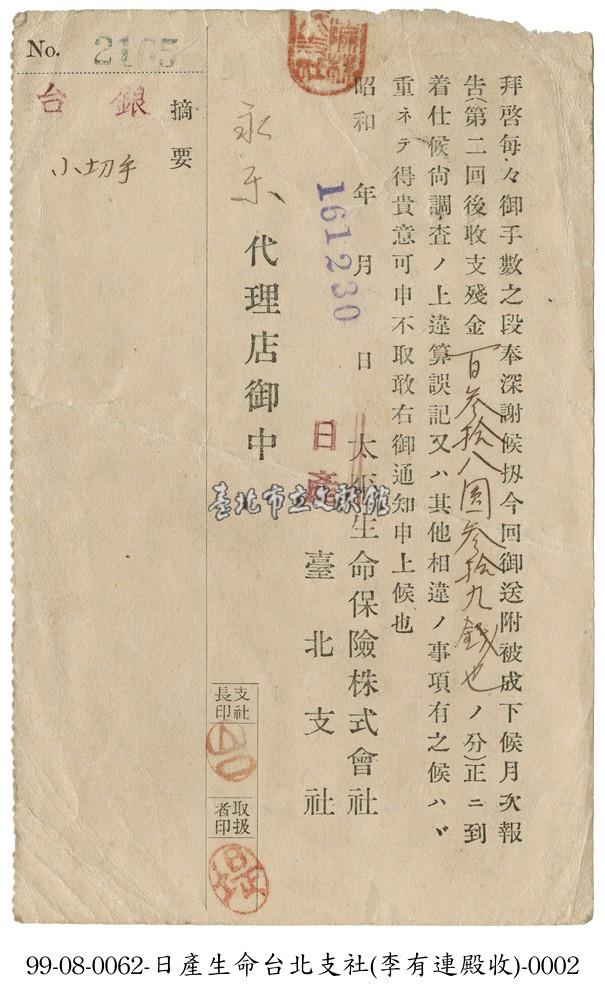 拜啓每々御手數之段奉深謝候扨今回御送附被成下候月次報
告(第二回後收支殘金百叁拾八圓叁拾九錢也ノ分)正ニ到
着仕候尙調査ノ上違算誤記又ハ其他相違ノ事項有之候ハヾ
重ネテ得貴意可申不取敢右御通知申上候也
昭和 年 月 日
161230
太平生命保險株式會社
日產
臺北支社
永樂代理店御中
支社長印
取扱者印
No. 2165
摘要
台銀
小切手
臺北市立文獻館
99-08-0062-日產生命台北支社(李有連殿收)-0002